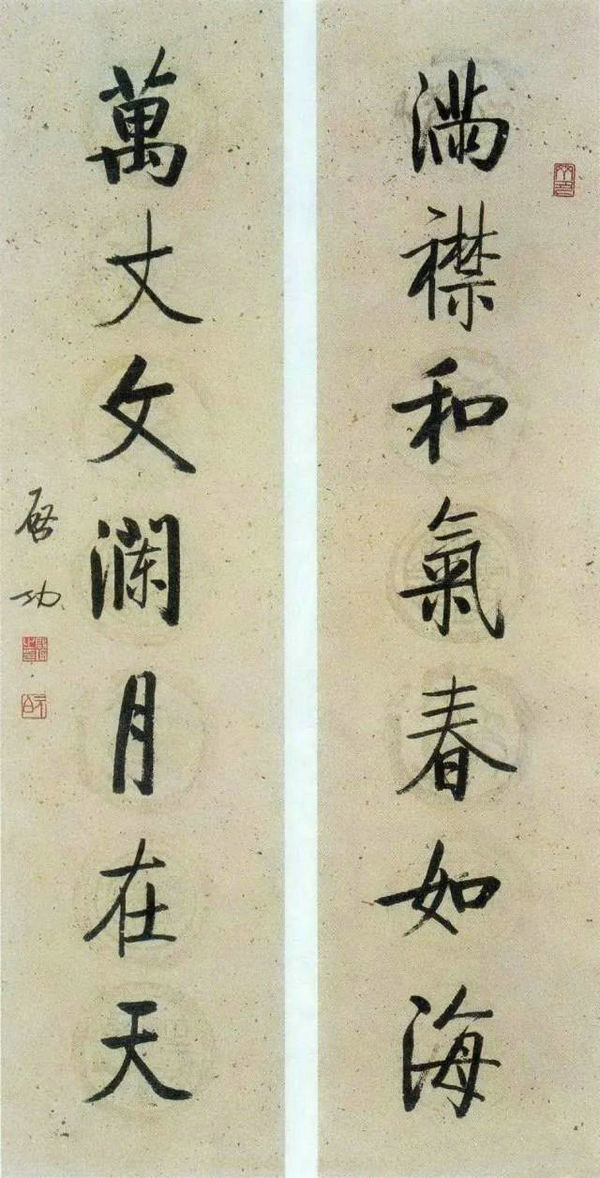 满襟和氣春如海
萬丈文瀾月在天
启功